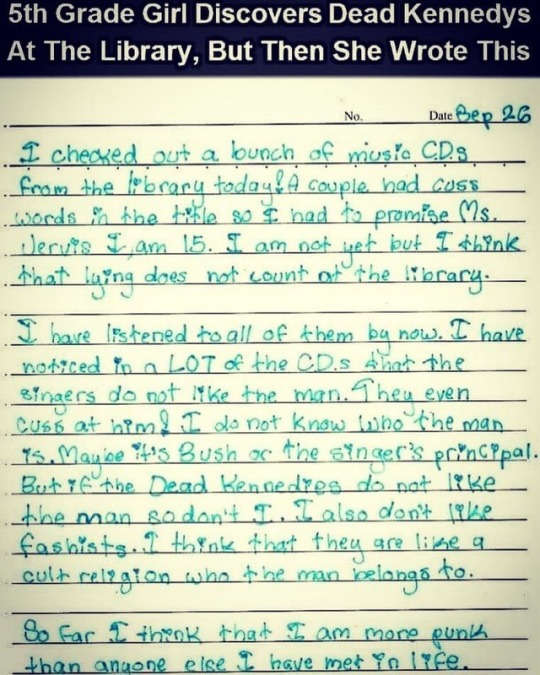 5th Grade Girl Discovers Dead Kennedys
At The Library, But Then She Wrote This
No. Date Sep 26
I checked out a bunch of music C.D.s
from the library today! A couple had cuss
words in the title so I had to promise Ms.
Jervis I am 15. I am not yet but I think
that lying does not count at the library.
I have listened to all of them by now. I have
noticed in a LOT of the C.D.s that the
singers do not like the man. They even
cuss at him! I do not know who the man
is. Maybe it's Bush or the singer's principal.
But if the Dead Kennedies do not like
the man so don't I. I also don't like
fashists. I think that they are like a
cult religion who the man belongs to.
So far I think that I am more punk
than anyone else I have met in life.